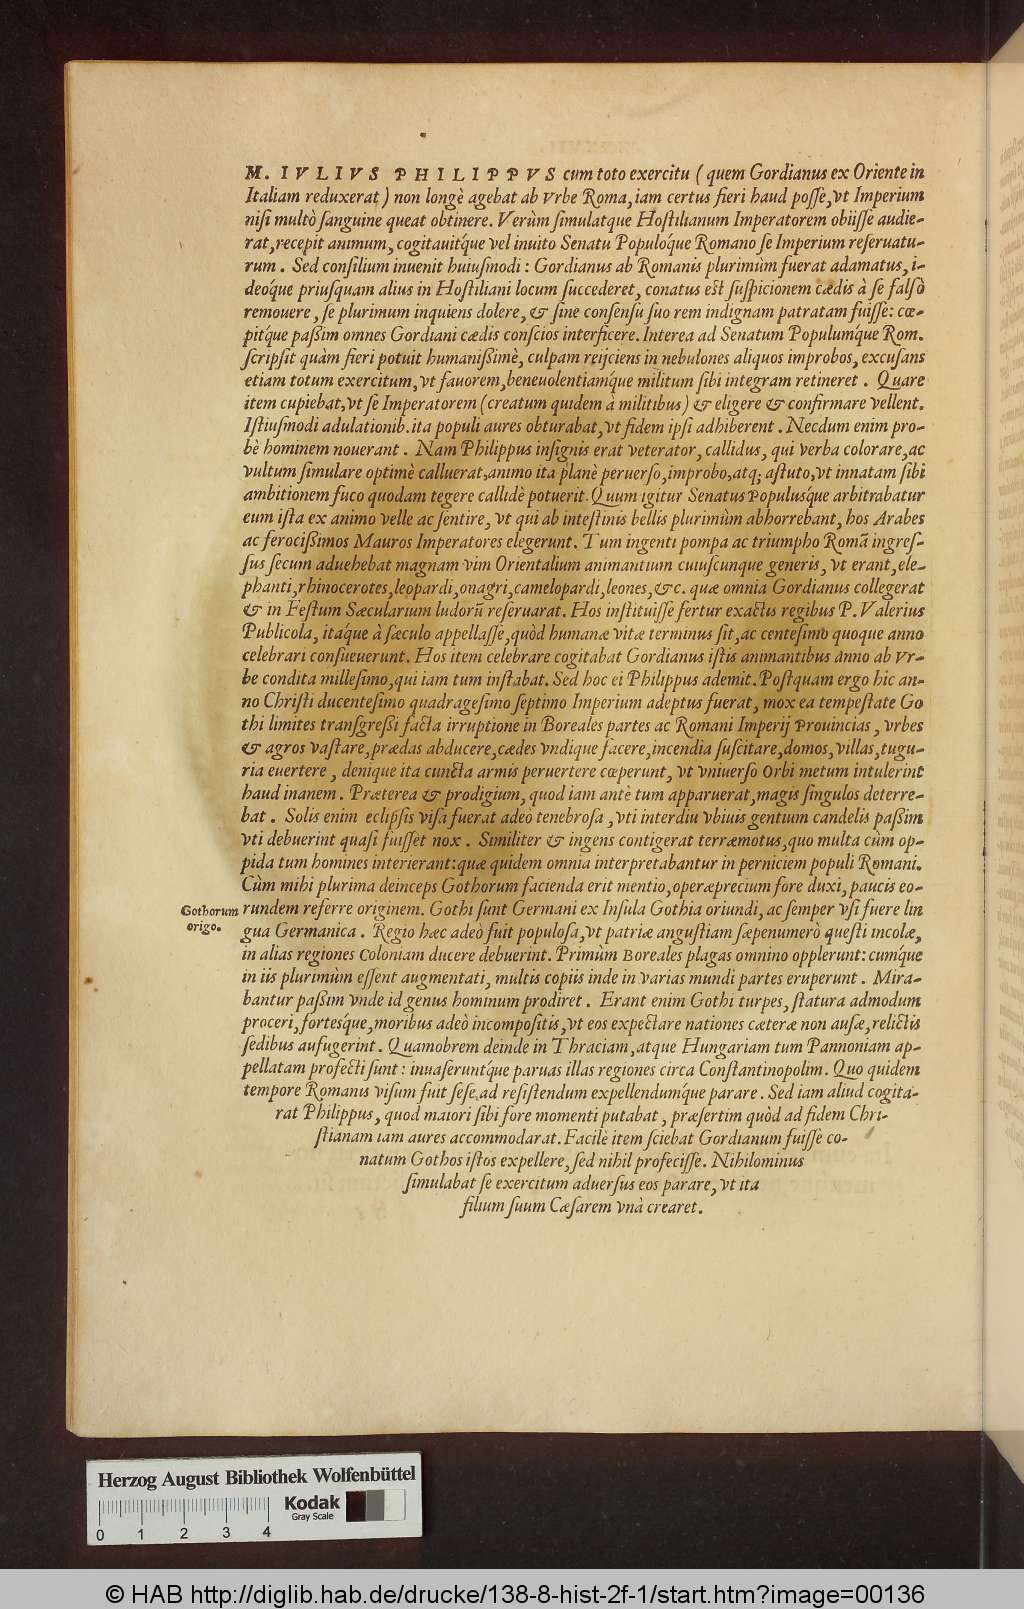 M. IVLIVS PHILIPPVS cum toto exercitu (quem Gordianus ex Oriente in
Italiam reduxerat) non longè agebat ab Vrbe Roma, iam certus fieri haud posse, vt Imperium
nisi multò sanguine queat obtinere. Verùm simulatque Hostilianum Imperatorem obiisse audie-
rat, recepit animum, cogitauitq́ue vel inuito Senatu Populoq́ue Romano se Imperium reseruatu-
rum. Sed consilium inuenit huiusmodi: Gordianus ab Romanis plurimùm fuerat adamatus, i-
deoq́ue priusquam alius in Hostiliani locum succederet, conatus est suspicionem cædis à se falsò
remouere, se plurimum inquiens dolere, & sine consensu suo rem indignam patratam fuisse: cœ-
pitq́ue paßim omnes Gordiani cædis conscios interficere. Interea ad Senatum Populumq́ue Rom.
scripsit quàm fieri potuit humanißimè, culpam reijciens in nebulones aliquos improbos, excusans
etiam totum exercitum, vt fauorem, beneuolentiamq́ue militum sibi integram retineret. Quare
item cupiebat, vt se Imperatorem (creatum quidem à militibus) & eligere & confirmare vellent.
Istiusmodi adulationib. ita populi aures obturabat, vt fidem ipsi adhiberent. Necdum enim pro-
bè hominem nouerant. Nam Philippus insignis erat veterator, callidus, qui verba colorare, ac
vultum simulare optimè calluerat, animo ita planè peruerso, improbo, atq; astuto, vt innatam sibi
ambitionem fuco quodam tegere callidè potuerit. Quum igitur Senatus Populusq́ue arbitrabatur
eum ista ex animo velle ac sentire, vt qui ab intestinis bellis plurimùm abhorrebant, hos Arabes
ac ferocißimos Mauros Imperatores elegerunt. Tum ingenti pompa ac triumpho Romã ingres-
sus secum aduehebat magnam vim Orientalium animantium cuiuscunque generis, vt erant, ele-
phanti, rhinocerotes, leopardi, onagri, camelopardi, leones, &c. quæ omnia Gordianus collegerat
& in Festum Sæcularium ludorũ reseruarat. Hos instituisse fertur exactis regibus P. Valerius
Publicola, itaq́ue à sæculo appellasse, quòd humanæ vitæ terminus sit, ac centesimo quoque anno
celebrari consueuerunt. Hos item celebrare cogitabat Gordianus istis animantibus anno ab Vr-
be condita millesimo, qui iam tum instabat. Sed hoc ei Philippus ademit. Postquam ergo hic an-
no Christi ducentesimo quadragesimo septimo Imperium adeptus fuerat, mox ea tempestate Go
thi limites transgreßi facta irruptione in Boreales partes ac Romani Imperij Prouincias, vrbes
& agros vastare, prædas abducere, cædes vndique facere, incendia suscitare, domos, villas, tugu-
ria euertere, denique ita cuncta armis peruertere cœperunt, vt vniuerso Orbi metum intulerint
haud inanem. Præterea & prodigium, quod iam antè tum apparuerat, magis singulos deterre-
bat. Solis enim eclipsis visa fuerat adeò tenebrosa, vti interdiu vbiuis gentium candelis paßim
vti debuerint quasi fuisset nox. Similiter & ingens contigerat terræmotus, quo multa cùm op-
pida tum homines interierant: quæ quidem omnia interpretabantur in perniciem populi Romani.
Cùm mihi plurima deinceps Gothorum facienda erit mentio, operæprecium fore duxi, paucis eo-
Gothorum origo.
rundem referre originem. Gothi sunt Germani ex Insula Gothia oriundi, ac semper vsi fuere lin
gua Germanica. Regio hæc adeò fuit populosa, vt patriæ angustiam sæpenumerò questi incolæ,
in alias regiones Coloniam ducere debuerint. Primùm Boreales plagas omnino opplerunt: cumq́ue
in iis plurimùm essent augmentati, multis copiis inde in varias mundi partes eruperunt. Mira-
bantur paßim vnde id genus hominum prodiret. Erant enim Gothi turpes, statura admodum
proceri, fortesq́ue, moribus adeò incompositis, vt eos expectare nationes cæteræ non ausæ, relictis
sedibus aufugerint. Quamobrem deinde in Thraciam, atque Hungariam tum Pannoniam ap-
pellatam profecti sunt: inuaseruntq́ue paruas illas regiones circa Constantinopolim. Quo quidem
tempore Romanis visum fuit sese, ad resistendum expellendumq́ue parare. Sed iam aliud cogita-
rat Philippus, quod maiori sibi fore momenti putabat, præsertim quòd ad fidem Chri-
stianam iam aures accommodarat. Facilè item sciebat Gordianum fuisse co-
natum Gothos istos expellere, sed nihil profecisse. Nihilominus
simulabat se exercitum aduersus eos parare, vt ita
filium suum Cæsarem vnà crearet.
Herzog August Bibliothek Wolfenbüttel
Kodak
Gray Scale
0 1 2 3 4
© HAB http://diglib.hab.de/drucke/138-8-hist-2f-1/start.htm?image=00136